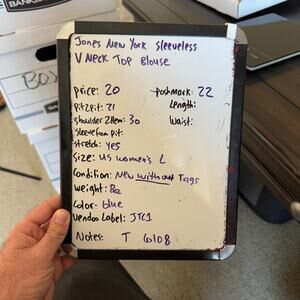 BANKERS
Box
Jones New York Sleeveless
V Neck Top Blouse
price: 20 poshmark: 22
Pit2pit: 21 Length:
shoulder 2Hem: 30 Waist:
Sleeve from pit:
stretch: yes
Size: US women's L
Condition: New without Tags
weight: 8oz
Color: blue
Vendoo Label: JTC1
Notes: T 6108